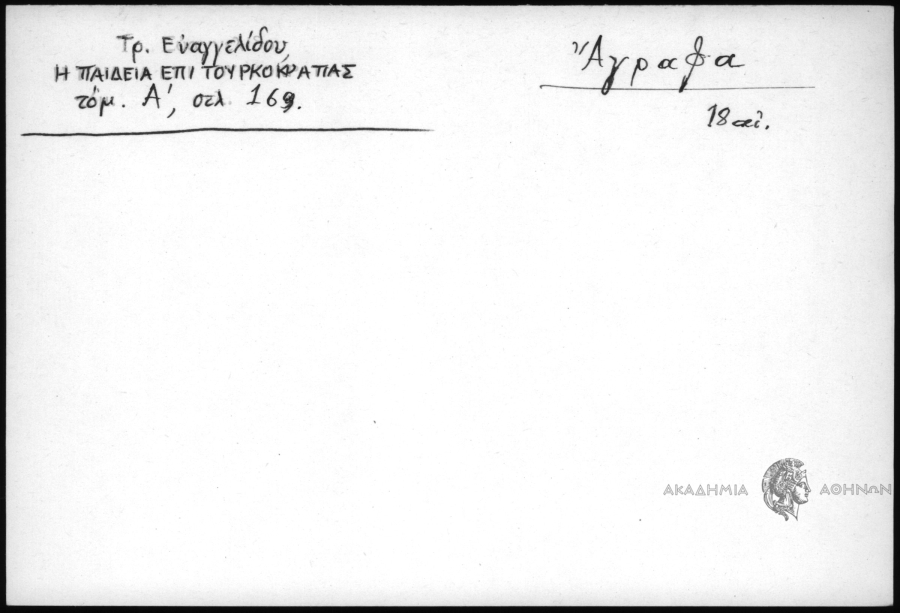 Τρ. Εὐαγγελίδου,
Η ΠΑΙΔΕΙΑ ΕΠΙ ΤΟΥΡΚΟΚΡΑΤΙΑΣ
τόμ. Α', σελ. 169.
Ἄγραφα
18 αἰ.
ΑΚΑΔΗΜΙΑ ΑΘΗΝΩΝ